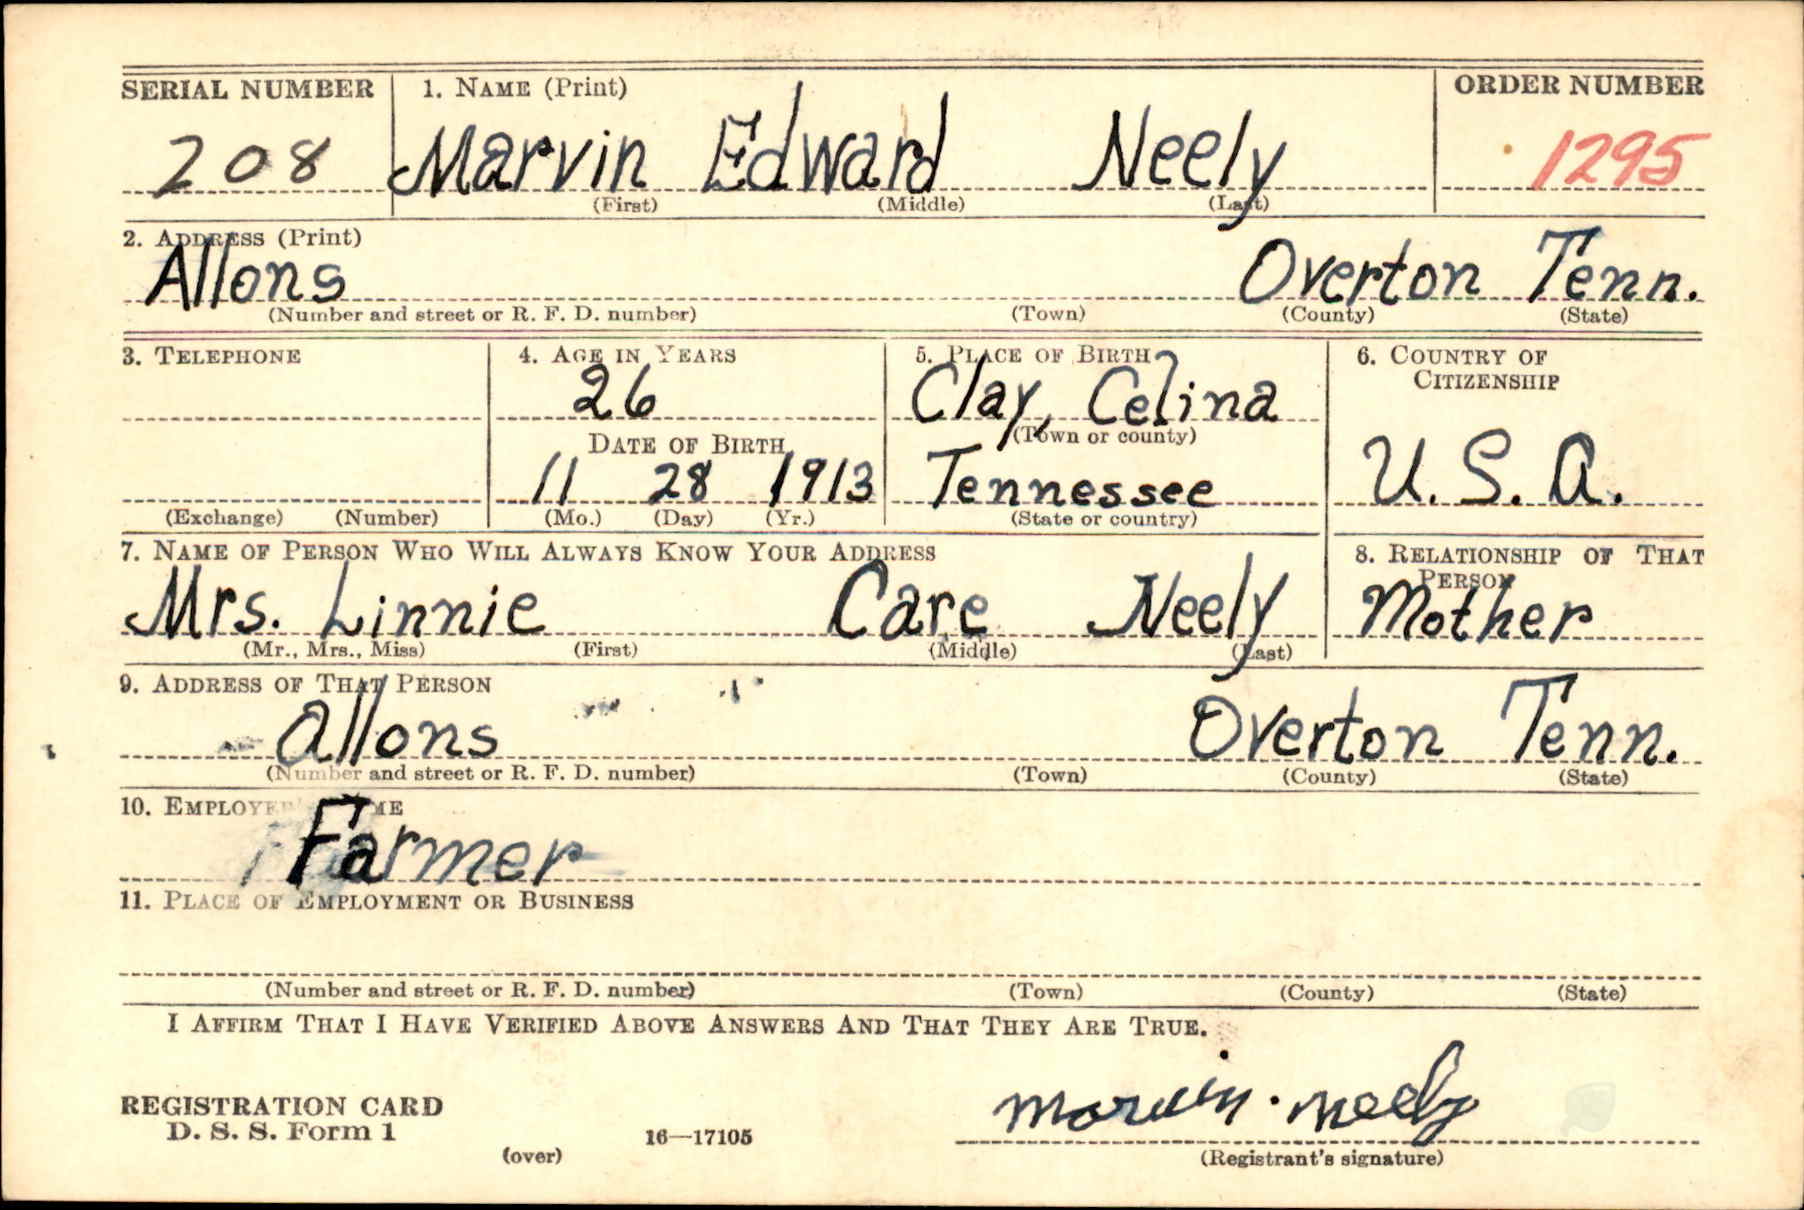 SERIAL NUMBER 1. NAME (Print) ORDER NUMBER
208 Marvin Edward Neely 1295
(First) (Middle) (Last)
2. ADDRESS (Print)
Allons Overton Tenn.
(Number and street or R. F. D. number) (Town) (County) (State)
3. TELEPHONE 4. AGE IN YEARS 5. PLACE OF BIRTH 6. COUNTRY OF CITIZENSHIP
26 Clay, Celina
DATE OF BIRTH (Town or county)
11 28 1913 Tennessee U. S. A.
(Exchange) (Number) (Mo.) (Day) (Yr.) (State or country)
7. NAME OF PERSON WHO WILL ALWAYS KNOW YOUR ADDRESS 8. RELATIONSHIP OF THAT PERSON
Mrs. Linnie Care Neely Mother
(Mr., Mrs., Miss) (First) (Middle) (Last)
9. ADDRESS OF THAT PERSON
Allons Overton Tenn.
(Number and street or R. F. D. number) (Town) (County) (State)
10. EMPLOYER'S NAME
Farmer
11. PLACE OF EMPLOYMENT OR BUSINESS
(Number and street or R. F. D. number) (Town) (County) (State)
I AFFIRM THAT I HAVE VERIFIED ABOVE ANSWERS AND THAT THEY ARE TRUE.
Marvin. Neely
REGISTRATION CARD
D. S. S. Form 1
(over) 16—17105 (Registrant's signature)